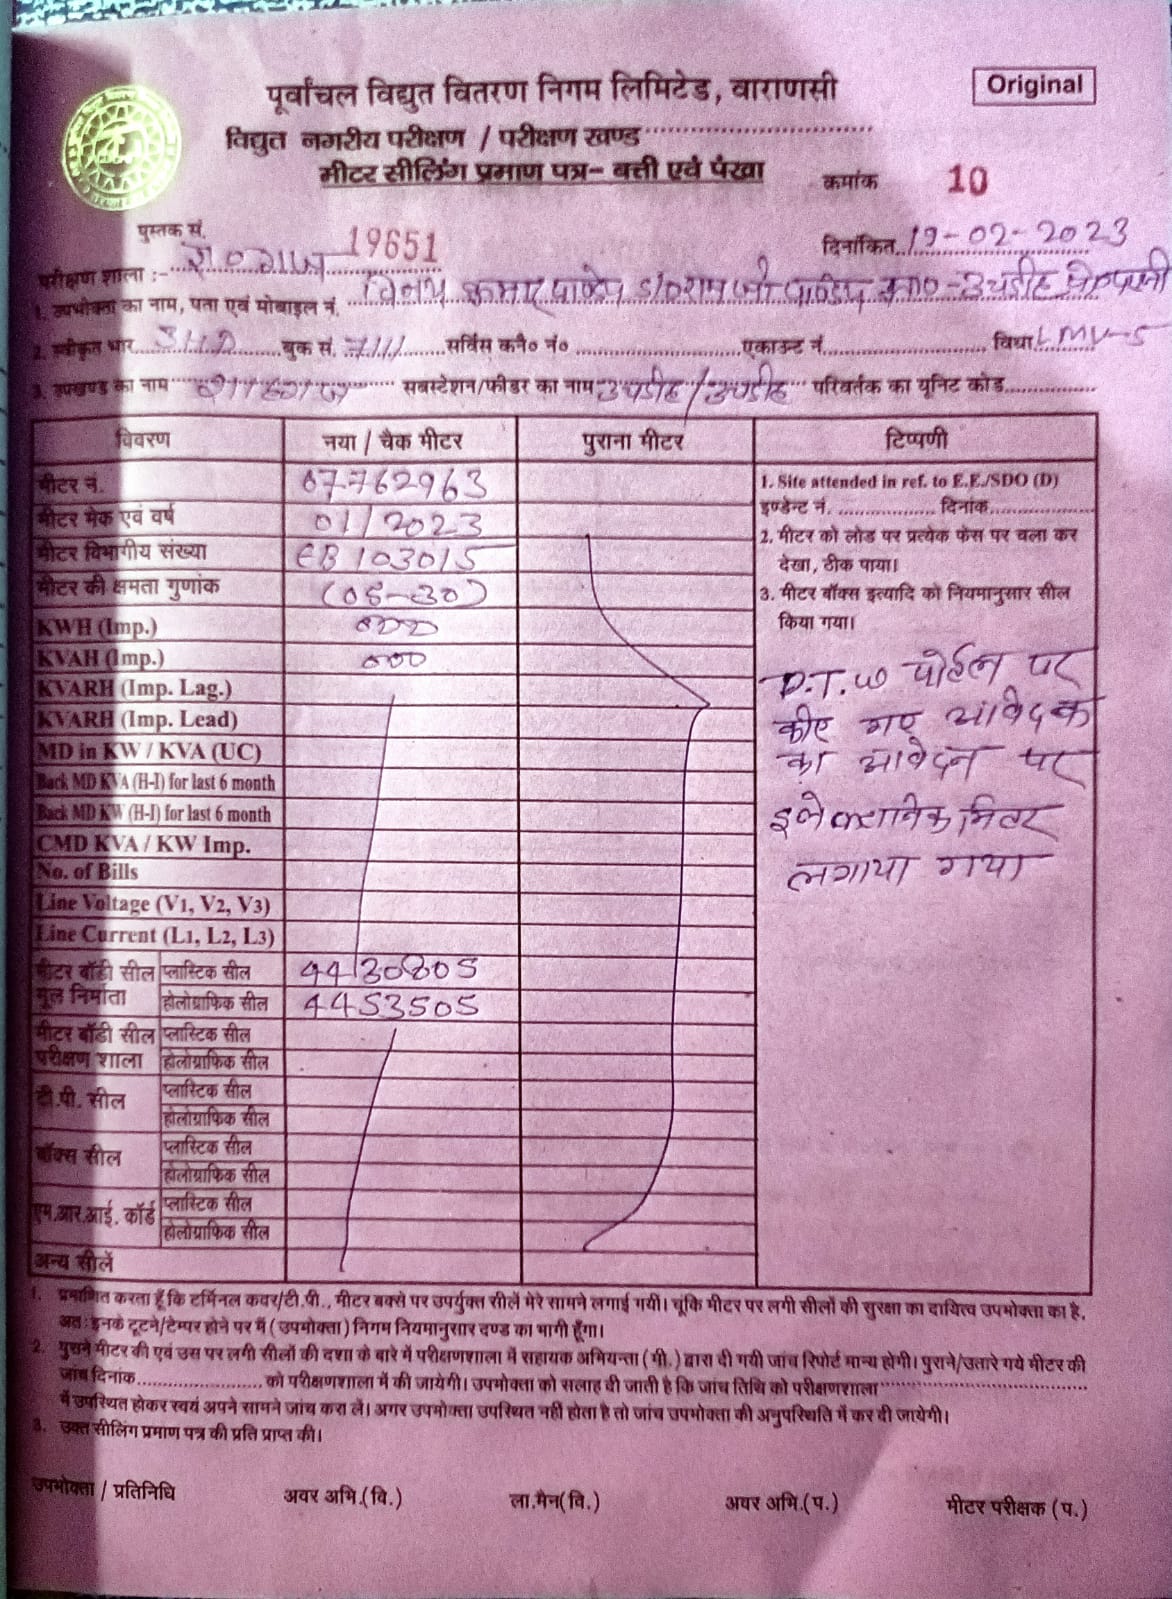 पूर्वांचल विद्युत वितरण निगम लिमिटेड, वाराणसी
Original
विद्युत नगरीय परीक्षण / परीक्षण खण्ड
मीटर सीलिंग प्रमाण पत्र- बत्ती एवं पंखा
कमांक 10
पुस्तक सं. 19651
दिनांकित 19-02-2023
परीक्षण शाला :-
1. उपभोक्ता का नाम, पता एवं मोबाइल नं. विनय कुमार पाण्डेय S/O राम जी पाण्डेय
2. स्वीकृत भार 3H.P बुक सं. 7111 सर्विस कनै० नं० एकाउन्ट नं. विधा LMV-5
3. उपखण्ड का नाम सबस्टेशन/फीडर का नाम उचडीह / उचडीह परिवर्तक का यूनिट कोड
विवरण नया / चैक मीटर पुराना मीटर टिप्पणी
मीटर नं. 07762963
मीटर मेक एवं वर्ष 01/2023
मीटर विभागीय संख्या EB103015
मीटर की क्षमता गुणांक (05-30)
KWH (Imp.) 000
KVAH (Imp.) 000
KVARH (Imp. Lag.)
KVARH (Imp. Lead)
MD in KW / KVA (UC)
Back MD KVA (H-I) for last 6 month
Back MD KW (H-I) for last 6 month
CMD KVA / KW Imp.
No. of Bills
Line Voltage (V1, V2, V3)
Line Current (L1, L2, L3)
मीटर बॉडी सील मूल निर्माता
प्लास्टिक सील 4430805
होलोग्राफिक सील 4453505
मीटर बॉडी सील परीक्षण शाला
प्लास्टिक सील
होलोग्राफिक सील
टी.पी. सील
प्लास्टिक सील
होलोग्राफिक सील
बॉक्स सील
प्लास्टिक सील
होलोग्राफिक सील
एम.आर.आई. कॉर्ड
प्लास्टिक सील
होलोग्राफिक सील
अन्य सीलें
1. Site attended in ref. to E.E./SDO (D)
इण्डेन्ट नं. दिनांक
2. मीटर को लोड पर प्रत्येक फेस पर चला कर
देखा, ठीक पाया।
3. मीटर बॉक्स इत्यादि को नियमानुसार सील
किया गया।
P.T.W पोर्टल पर
कीए गए आवेदक
का आवेदन पर
इलेक्ट्रानिक मिटर
लगाया गया
1. प्रमाणित करता हूँ कि टर्मिनल कवर/टी.पी., मीटर बक्से पर उपर्युक्त सीलें मेरे सामने लगाई गयीं। चूंकि मीटर पर लगी सीलों की सुरक्षा का दायित्व उपभोक्ता का है,
अतः इनके टूटने/टेम्पर होने पर मैं (उपभोक्ता) निगम नियमानुसार दण्ड का भागी हूँगा।
2. पुराने मीटर की एवं उस पर लगी सीलों की दशा के बारे में परीक्षणशाला में सहायक अभियन्ता (मी.) द्वारा दी गयी जांच रिपोर्ट मान्य होगी। पुराने/उतारे गये मीटर की
जांच दिनांक को परीक्षणशाला में की जायेगी। उपभोक्ता को सलाह दी जाती है कि जांच तिथि को परीक्षणशाला
में उपस्थित होकर स्वयं अपने सामने जांच करा लें। अगर उपभोक्ता उपस्थित नहीं होता है तो जांच उपभोक्ता की अनुपस्थिति में कर दी जायेगी।
3. उक्त सीलिंग प्रमाण पत्र की प्रति प्राप्त की।
उपभोक्ता / प्रतिनिधि अवर अभि.(वि.) ला.मैन(वि.) अवर अभि.(प.) मीटर परीक्षक (प.)